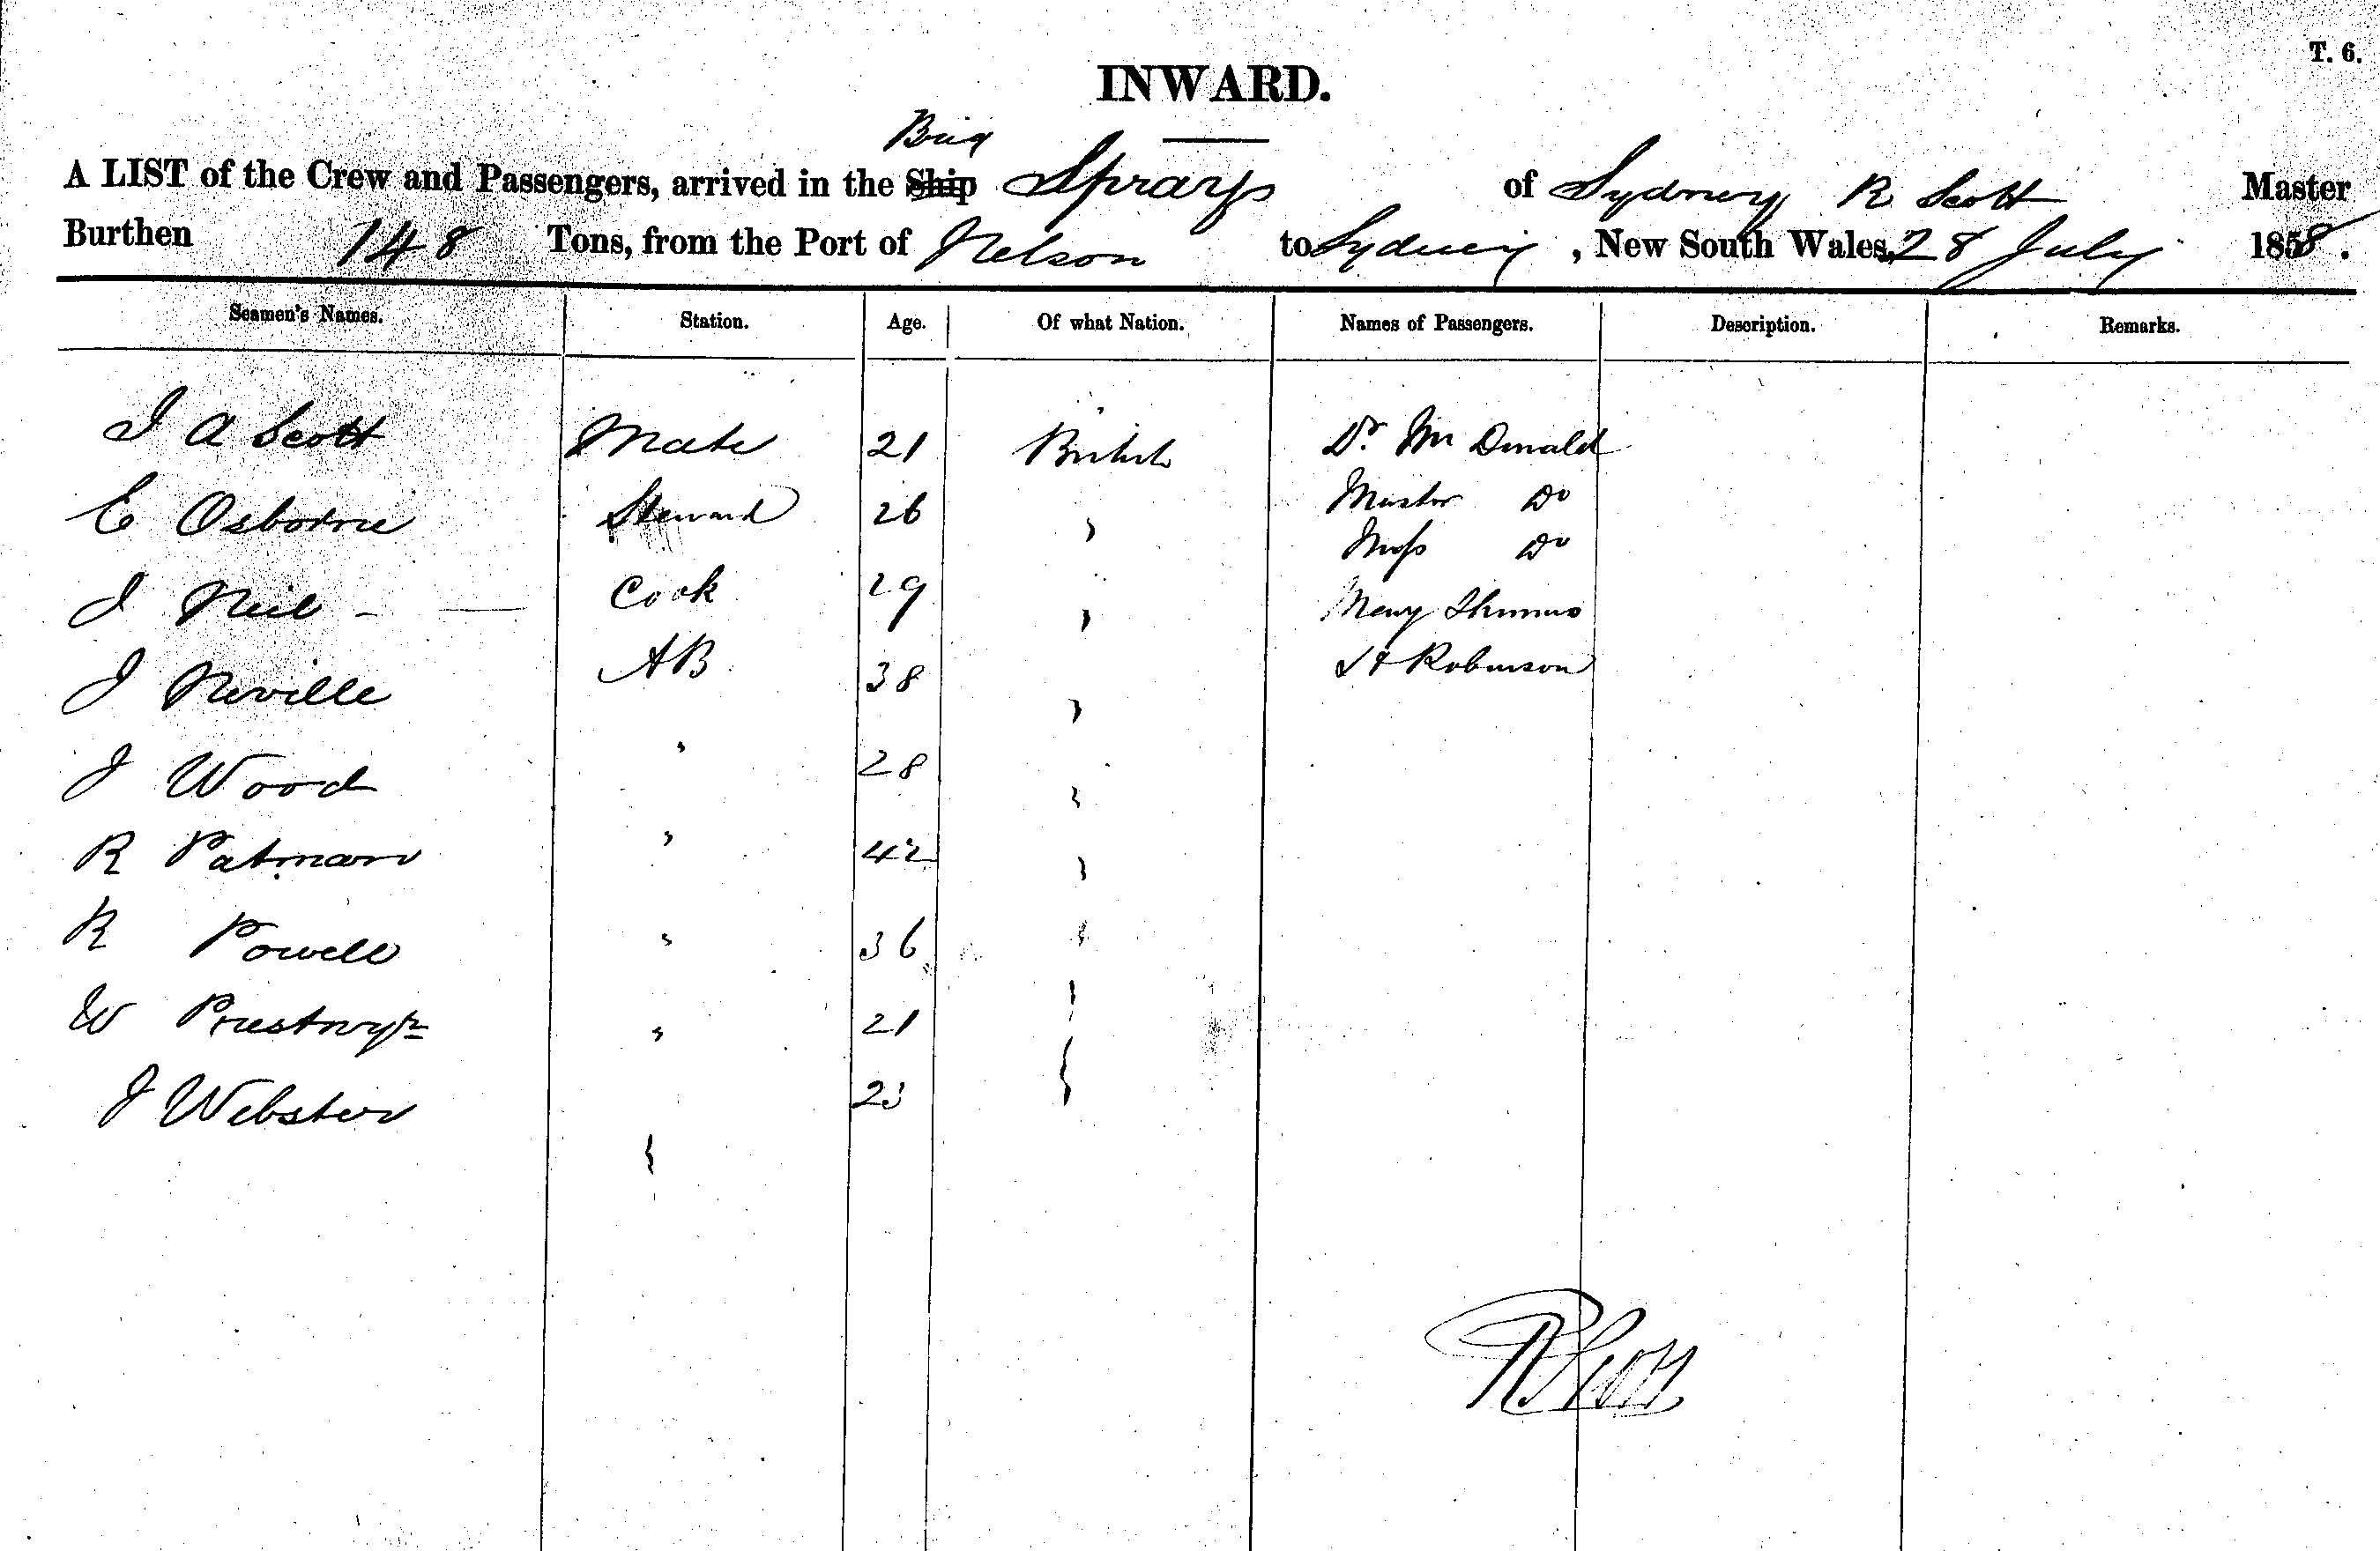 T. 6.
INWARD.
Brig
A LIST of the Crew and Passengers, arrived in the Ship Spray of Sydney R Scott Master
Burthen 148 Tons, from the Port of Nelson to Sydney, New South Wales, 28 July 1858.
Seamen's Names. Station. Age. Of what Nation. Names of Passengers. Description. Remarks.
J A Scott Mate 21 British Dr. Mc Donald
E Osborne Steward 26 " Master Do
Miss Do
J Neil - Cook 29 " Mary
J Neville AB 38 " Robinson
J Wood " 28 "
R Patman " 42 "
R Powell " 36 "
W " 21 "
J Webster " 23 "
R Scott